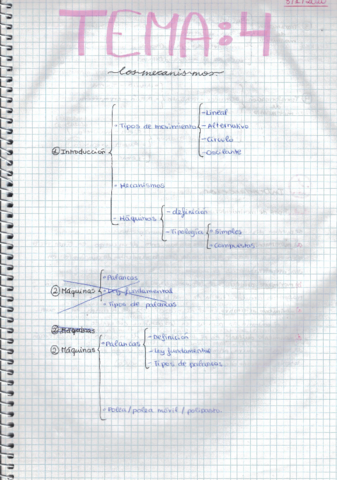 TEMA:4
Los mecanismos
- Lineal
- Tipos de movimiento
- Alternativo
- Círculo
- Oscilante
① Introducción
- Mecanismos
- Máquinas
- definición
- Tipología
- Simples
- Compuestas
- Palancas
② Máquinas
- Ley fundamental
- Tipos de palancas
② Máquinas
② Máquinas
- Palancas
- Definición
- Ley fundamental
- Tipos de palancas
- Polea/polea móvil / polipasto